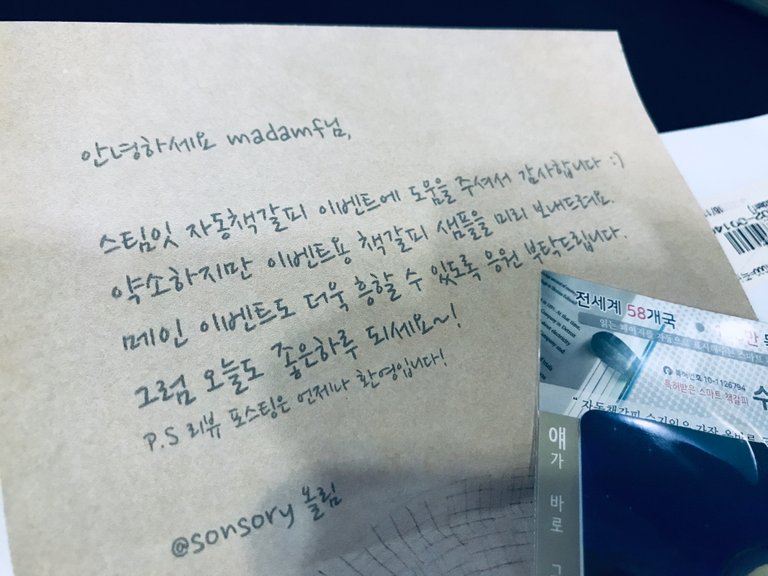 안녕하세요 madamf님,
스팀잇 자동책갈피 이벤트에 도움을 주셔서 감사합니다 :)
약소하지만 이벤트용 책갈피 샘플을 미리 보내드려요.
메인 이벤트도 더욱 흥할 수 있도록 응원 부탁드립니다.
그럼 오늘도 좋은하루 되세요~!
P.S 리뷰 포스팅은 언제나 환영입니다!
@sonsory 올림
전세계 58개국
특허번호 10-1126794
특허받은 스마트 책갈피
얘
가
바
로